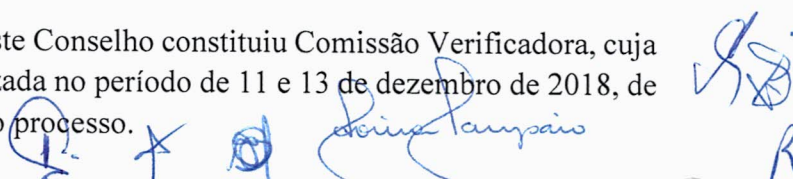 te Conselho constituiu Comissão Verificadora, cuja
ada no período de 11 e 13 de dezembro de 2018, de
processo.
Sampaio